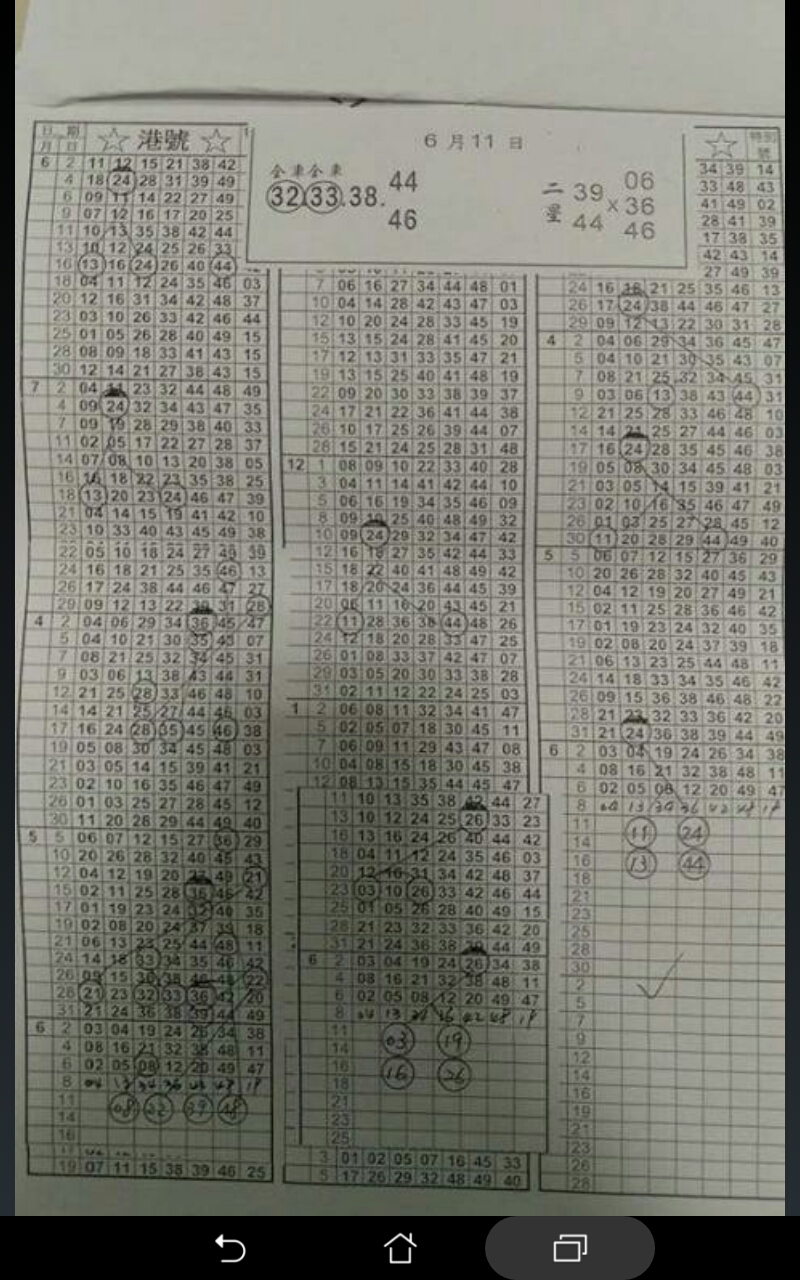 6月11日
全車全車
32.33.38.44
46
二星 39 44 × 06 36 46
日 期 ☆ 港號 ☆
月 日
6 2 11 12 15 21 38 42
4 18 24 28 31 39 49
6 09 11 14 22 27 49
9 07 12 16 17 20 25
11 10 13 35 38 42 44
13 10 12 24 25 26 33
16 13 16 24 26 40 44
18 04 11 12 24 35 46 03
20 12 16 31 34 42 48 37
23 03 10 26 33 42 46 44
25 01 05 26 28 40 49 15
28 08 09 18 33 41 43 15
30 12 14 21 27 38 43 15
7 2 04 23 32 44 48 49
4 09 24 32 34 43 47 35
7 09 19 28 29 38 40 33
11 02 05 17 22 27 28 37
14 07 08 10 13 20 38 05
16 16 18 22 23 35 38 25
18 13 20 23 24 46 47 39
21 04 14 15 19 41 42 10
23 10 33 40 43 45 49 38
22 05 10 18 24 27 49 39
24 16 18 21 25 35 46 13
26 17 24 38 44 46 47 27
29 09 12 13 22 30 31 28
4 2 04 06 29 34 36 45 47
5 04 10 21 30 35 43 07
7 08 21 25 32 34 45 31
9 03 06 13 38 43 44 31
12 21 25 28 33 46 48 10
14 14 21 25 27 44 46 03
17 16 24 28 35 45 46 38
19 05 08 30 34 45 48 03
21 03 05 14 15 39 41 21
23 02 10 16 35 46 47 49
26 01 03 25 27 28 45 12
30 11 20 28 29 44 49 40
5 5 06 07 12 15 27 36 29
10 20 26 28 32 40 45 43
12 04 12 19 20 49 21
15 02 11 25 28 36 46 42
17 01 19 23 24 32 40 35
19 02 08 20 24 37 39 18
21 06 13 23 25 44 48 11
24 14 18 33 34 35 46 42
26 09 15 36 38 46 48 22
28 21 23 32 33 36 42 20
31 21 24 36 38 39 44 49
6 2 03 04 19 24 26 34 38
4 08 16 21 32 38 48 11
6 02 05 08 12 20 49 47
8
11 08 22 39 48
14
16
19 07 11 15 38 39 46 25
7 06 16 27 34 44 48 01
10 04 14 28 42 43 47 03
12 10 20 24 28 33 45 19
15 13 15 24 28 41 45 20
17 12 13 31 33 35 47 21
19 13 15 25 40 41 48 19
22 09 20 30 33 38 39 37
24 17 21 22 36 41 44 38
26 10 17 25 26 39 44 07
28 15 21 24 25 28 31 48
12 1 08 09 10 22 33 40 28
3 04 11 14 41 42 44 10
5 06 16 19 34 35 46 09
8 09 25 40 48 49 32
10 09 24 29 32 34 47 42
12 16 18 27 35 42 44 33
15 18 22 40 41 48 49 42
17 18 20 24 36 44 45 39
20 06 11 16 20 43 45 21
22 11 28 36 38 44 48 26
24 12 18 20 28 33 47 25
26 01 08 33 37 42 47 07
29 03 05 20 30 33 38 28
31 02 11 12 22 24 25 03
1 2 06 08 11 32 34 41 47
5 02 05 07 18 30 45 11
7 06 09 11 29 43 47 08
10 04 08 15 18 30 45 38
12 08 13 15 35 44 45 47
11 10 13 35 38 42 44 27
13 10 12 24 25 26 33 23
16 13 16 24 26 40 44 42
18 04 11 12 24 35 46 03
20 12 16 31 34 42 48 37
23 03 10 26 33 42 46 44
25 01 05 26 28 40 49 15
28 21 23 32 33 36 42 20
31 21 24 36 38 39 44 49
6 2 03 04 19 24 26 34 38
4 08 16 21 32 38 48 11
6 02 05 08 12 20 49 47
8 04 13 34 36 42 48 18
11 03 19
14
16 16 26
18
21
23
25
3 01 02 05 07 16 45 33
5 17 26 29 32 48 49 40
☆ 特別號
34 39 14
33 48 43
41 49 02
28 41 39
17 38 35
42 43 14
27 49 39
24 16 18 21 25 35 46 13
26 17 24 38 44 46 47 27
29 09 12 13 22 30 31 28
4 2 04 06 29 34 36 45 47
5 04 10 21 30 35 43 07
7 08 21 25 32 34 45 31
9 03 06 13 38 43 44 31
12 21 25 28 33 46 48 10
14 14 21 25 27 44 46 03
17 16 24 28 35 45 46 38
19 05 08 30 34 45 48 03
21 03 05 14 15 39 41 21
23 02 10 16 35 46 47 49
26 01 03 25 27 28 45 12
30 11 20 28 29 44 49 40
5 5 06 07 12 15 27 36 29
10 20 26 28 32 40 45 43
12 04 12 19 20 27 49 21
15 02 11 25 28 36 46 42
17 01 19 23 24 32 40 35
19 02 08 20 24 37 39 18
21 06 13 23 25 44 48 11
24 14 18 33 34 35 46 42
26 09 15 36 38 46 48 22
28 21 23 32 33 36 42 20
31 21 24 36 38 39 44 49
6 2 03 04 19 24 26 34 38
4 08 16 21 32 38 48 11
6 02 05 08 12 20 49 47
8 04 13 34 36 42 48 18
11 11 24
14
16 13 44
18
21
23
25
28
30
2
5
7
9
12
14
16
19
21
23
26
28